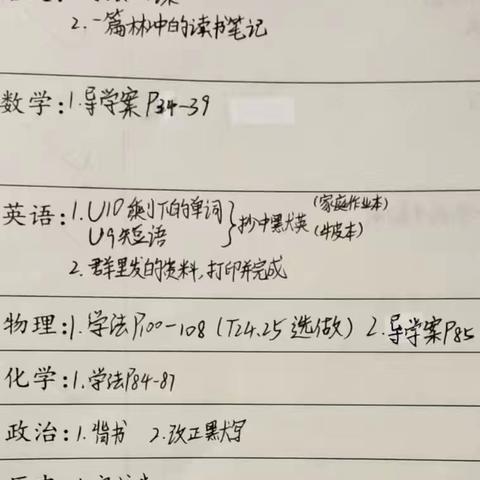 2.一篇林中的读书笔记
数学:1.导学案P34-39
英语:1.U10剩下的单词 }抄中默大英 (家庭作业本)
U9短语 (牛皮本)
2.群里发的资料,打印并完成
物理:1.学法P100-108(T24.25选做) 2.导学案P85
化学:1.学法P84-87
政治:1.背书 2.改正默写